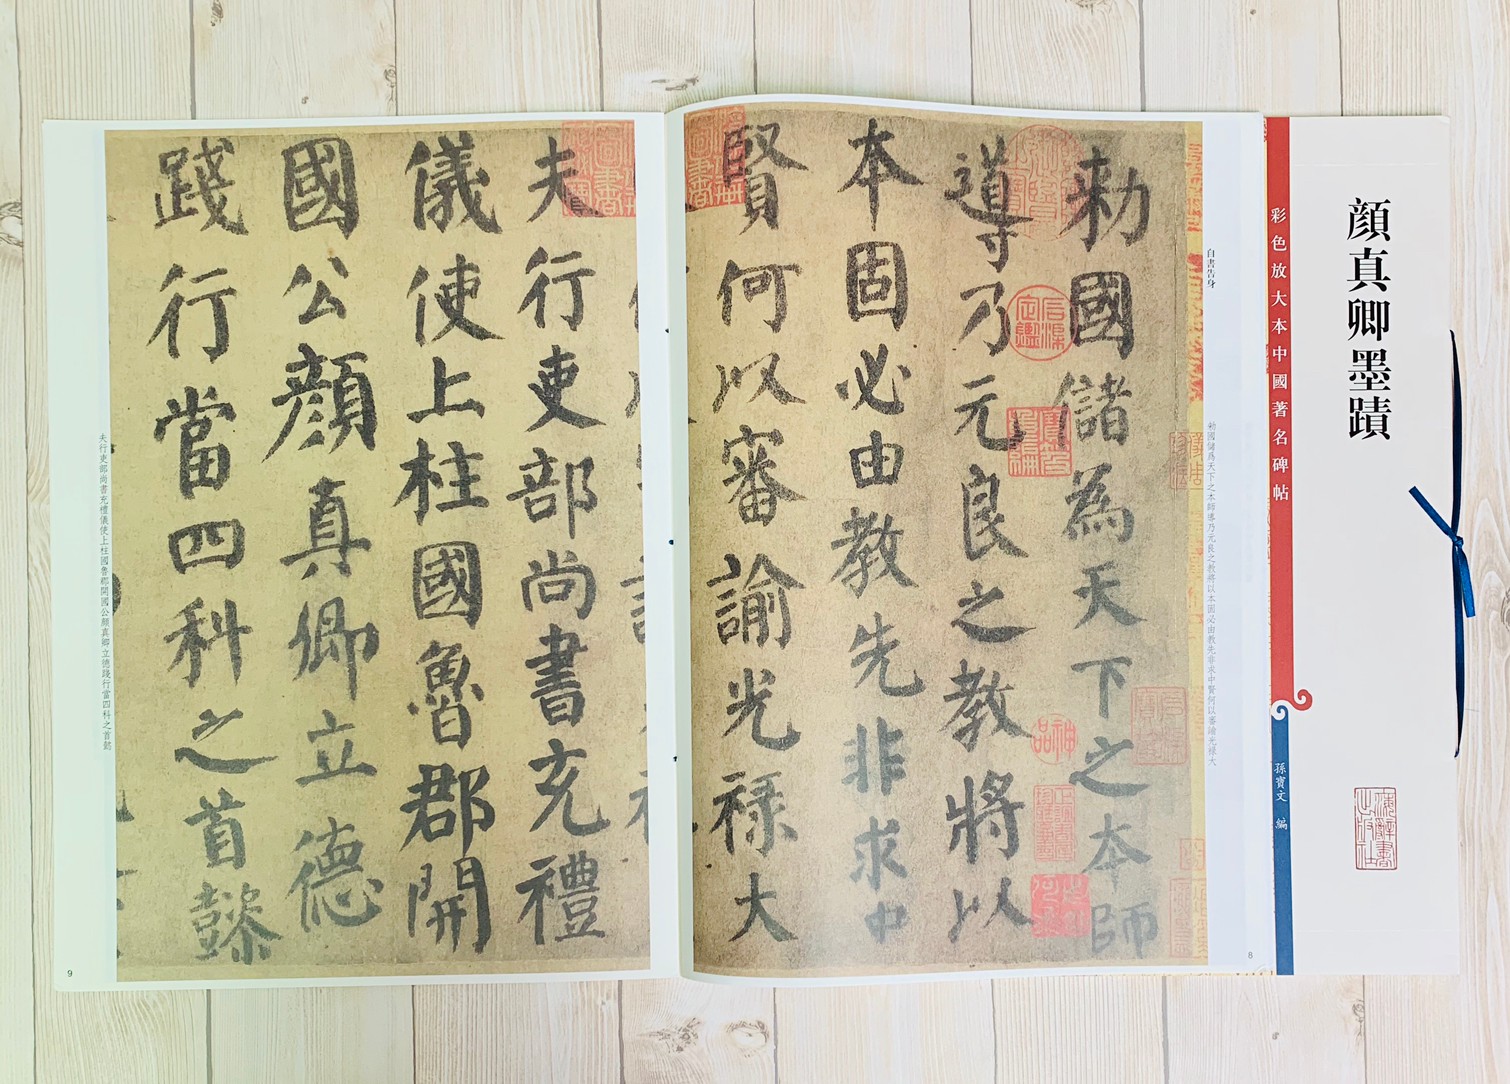 顔真卿墨蹟
彩色放大本中國著名碑帖
孫寶文 編
海上辭書出版社
自書告身
勑國儲為天下之本師
導乃元良之教將以
本固必由教先非求中
賢何以審諭光祿大
勑國儲爲天下之本師導乃元良之教將以本固必由教先非求中賢何以審諭光祿大
8
夫行吏部尚書充禮
儀使上柱國魯郡開
國公顏真卿立德
踐行當四科之首懿
夫行吏部尚書充禮儀使上柱國魯郡開國公顏真卿立德踐行當四科之首懿
9